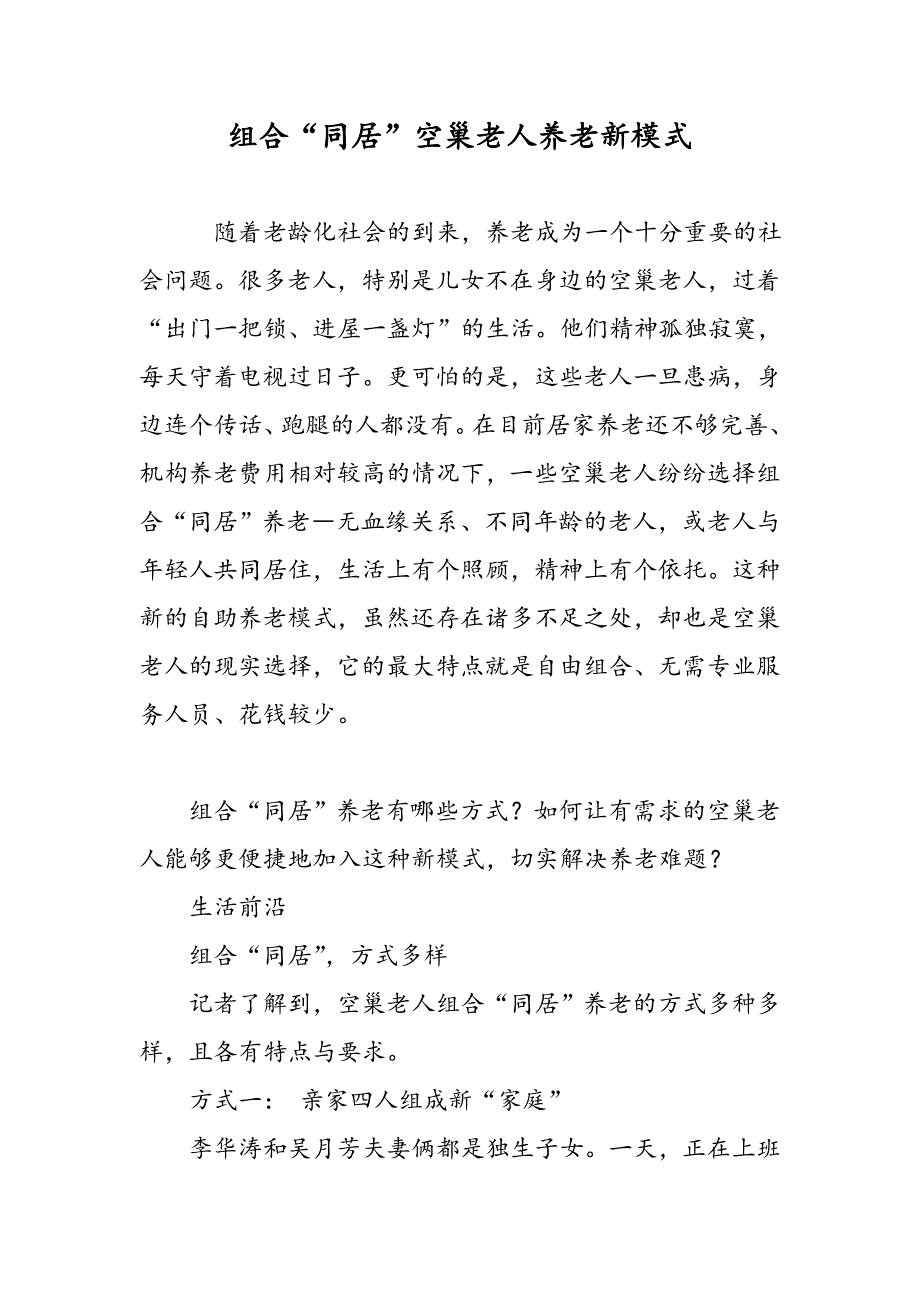 组合“同居”空巢老人养老新模式
随着老龄化社会的到来，养老成为一个十分重要的社
会问题。很多老人，特别是儿女不在身边的空巢老人，过着
“出门一把锁、进屋一盏灯”的生活。他们精神孤独寂寞，
每天守着电视过日子。更可怕的是，这些老人一旦患病，身
边连个传话、跑腿的人都没有。在目前居家养老还不够完善、
机构养老费用相对较高的情况下，一些空巢老人纷纷选择组
合“同居”养老—无血缘关系、不同年龄的老人，或老人与
年轻人共同居住，生活上有个照顾，精神上有个依托。这种
新的自助养老模式，虽然还存在诸多不足之处，却也是空巢
老人的现实选择，它的最大特点就是自由组合、无需专业服
务人员、花钱较少。
组合“同居”养老有哪些方式？如何让有需求的空巢老
人能够更便捷地加入这种新模式，切实解决养老难题？
生活前沿
组合“同居”，方式多样
记者了解到，空巢老人组合“同居”养老的方式多种多
样，且各有特点与要求。
方式一： 亲家四人组成新“家庭”
李华涛和吴月芳夫妻俩都是独生子女。一天，正在上班